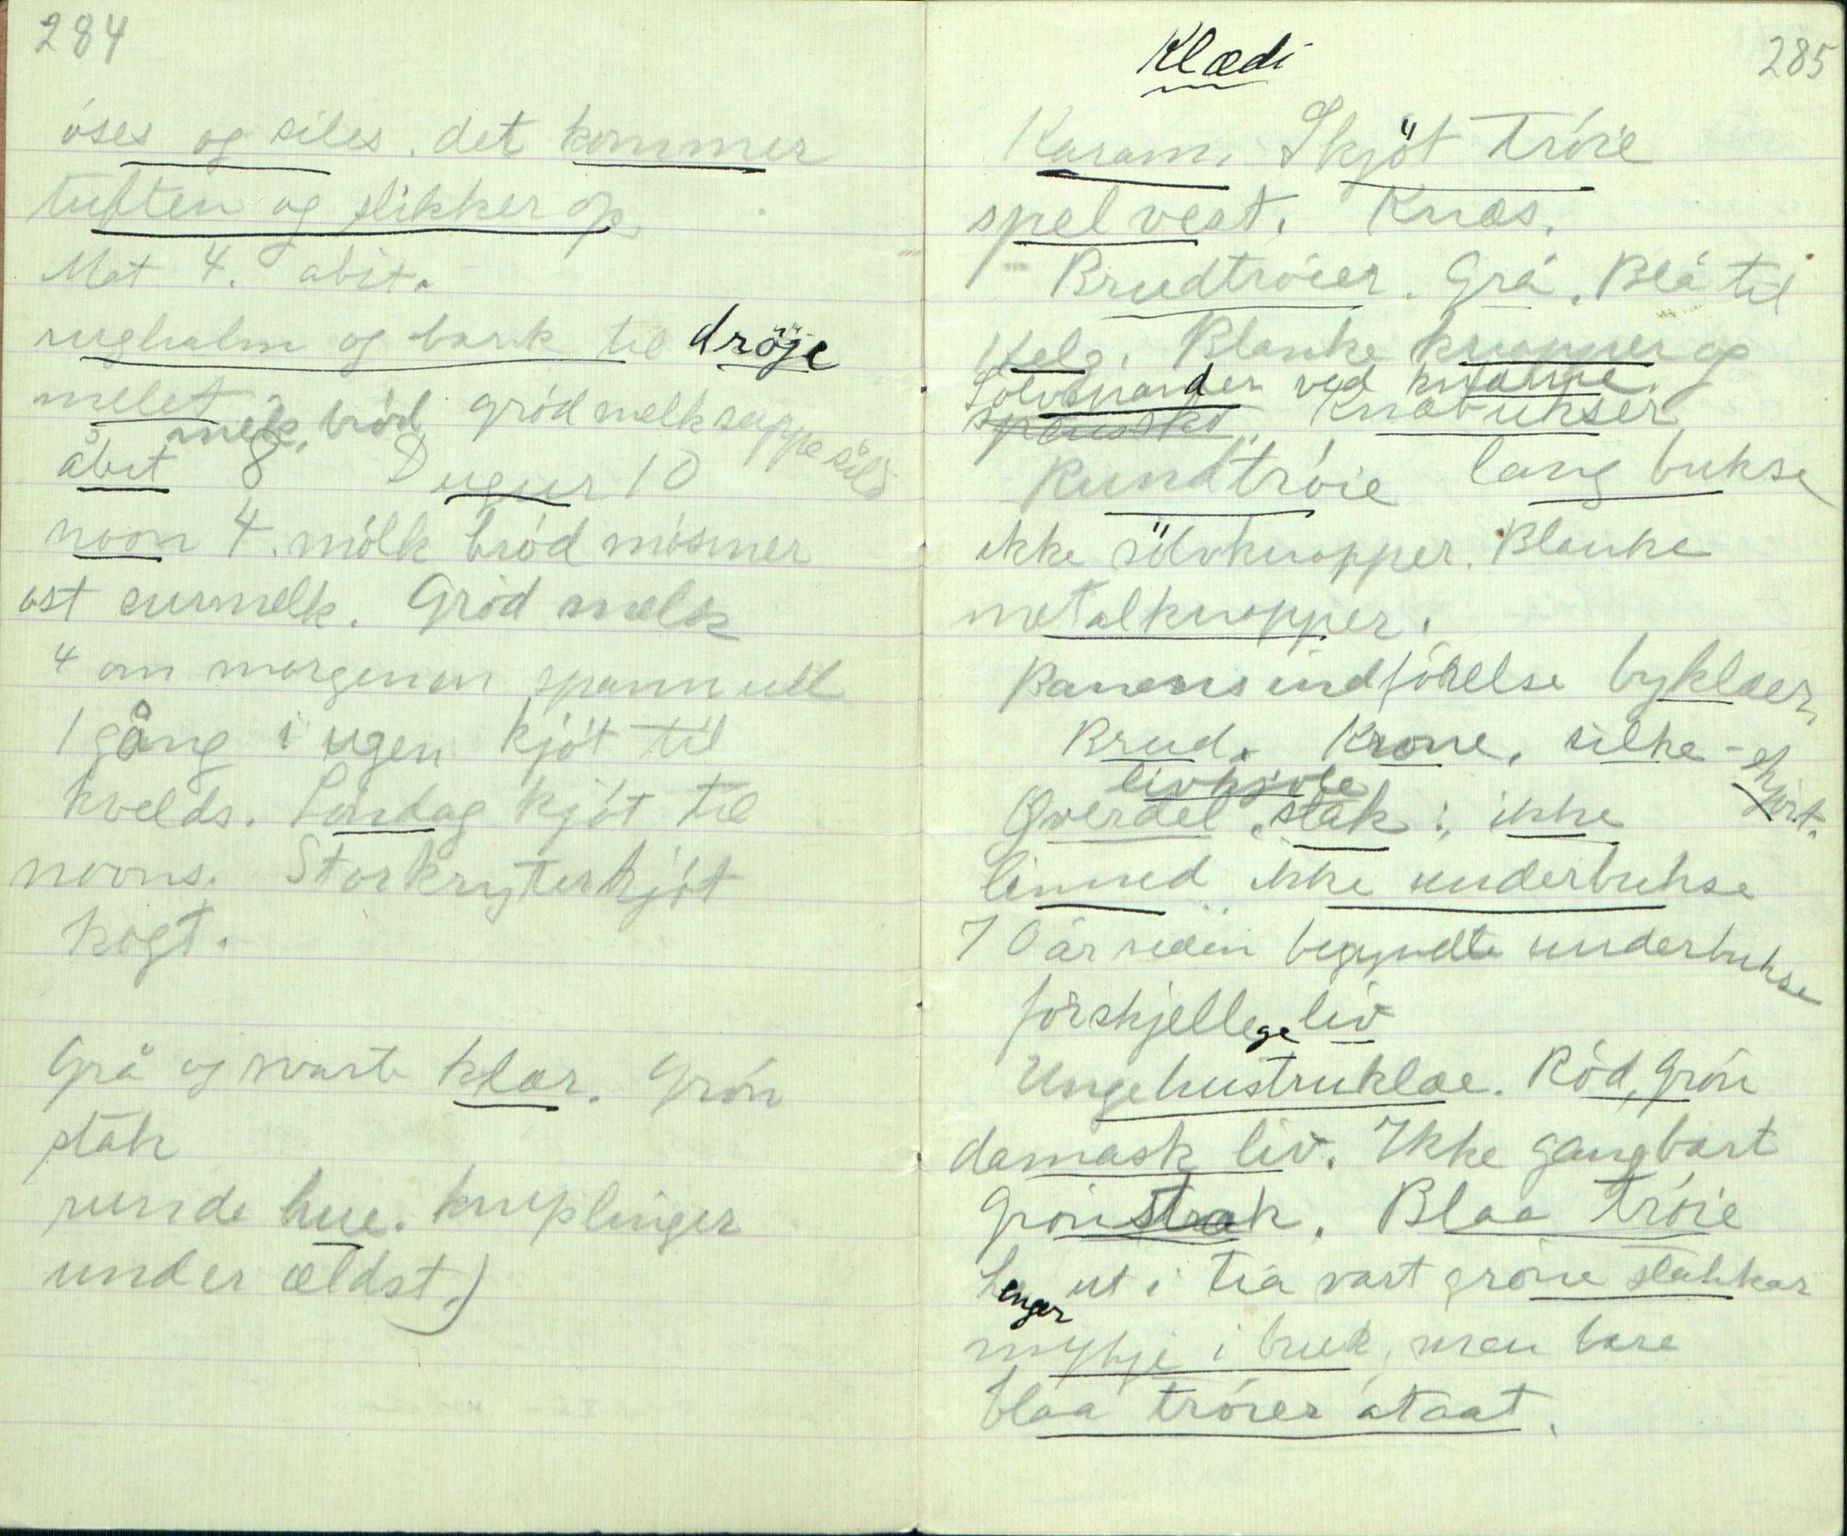 284
óses og siles. det kommer
tuften og slikker op.
Mat 4. abit.
rughalm og bark til dröje
melet
melk, bród gród melksuppe sild
åbit 8 Dugur 10
noon 4. mólk bród mósmer
ost surmelk. Gród melk
4 om morgenen spann ull
1 gång i ugen kjót til
kvelds. Söndag kjót til
noons. Storkryterkjót
kogt.
Grå og svarte klær. Grón
stak
runde hue. kniplinger
under ældst.)
285
Klædi
Karam. Skjöt tróie
spelvest. Knæs.
Brudtróier. Grå. Blå til
Kelg. Blanke knapper og
Sólvspander ved knærne.
spensko. Knæbukser
Rundtróie lang bukse
ikke sölvknapper. Blanke
metalknapper.
Banens indfórelse byklær,
Brud. Krone, silke-skjört.
livkjole
Overdel, stak; ikke
linned ikke underbukse
70 år siden begyndte underbukse
forskjellege liv
Ungehustruklæ. Ród, grón
damask liv. Ikke gangbart
grón strak. Blaa tróie
Lenger ut i tia vart gróne stakkar
mykje i bruk, men bare
blaa tróier ataat.